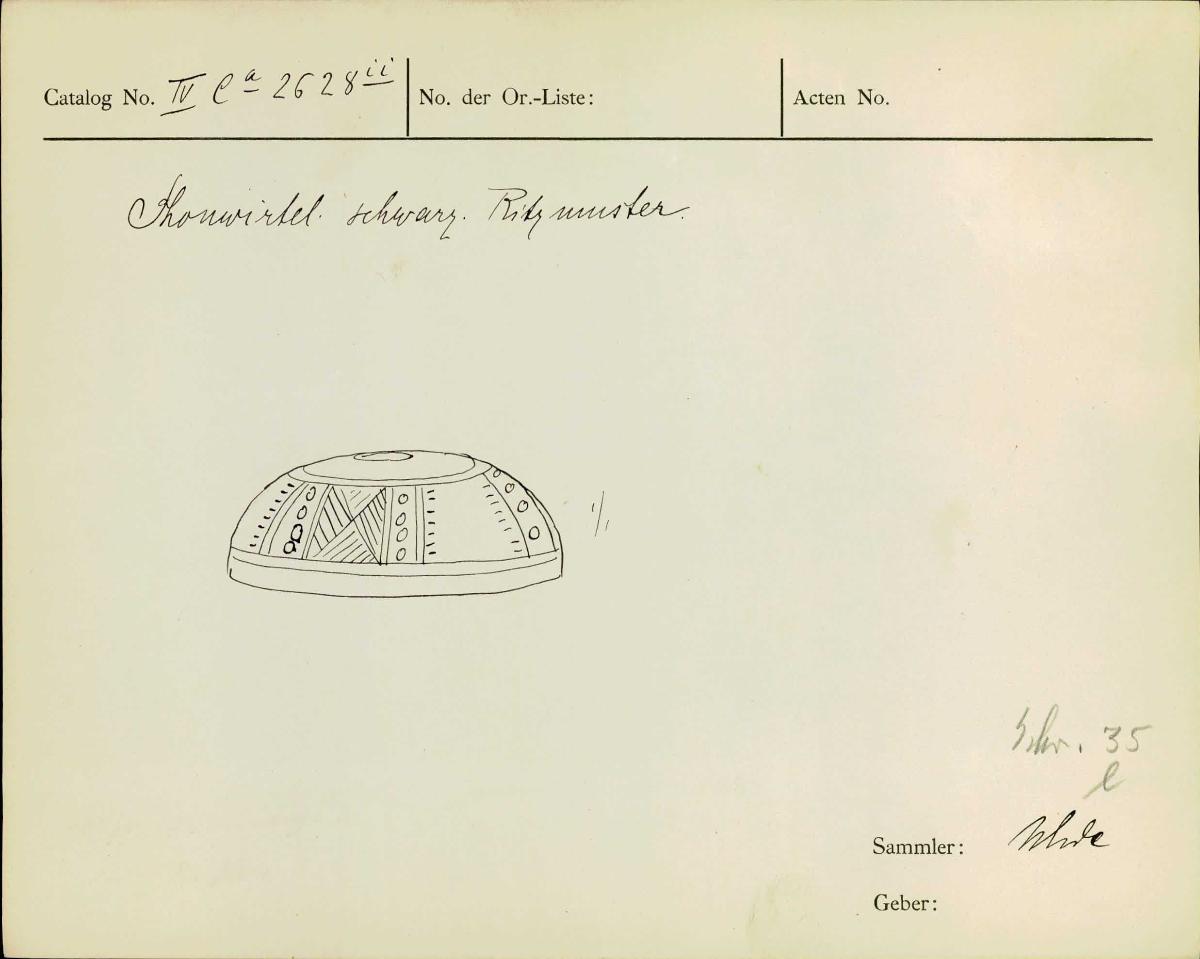 Catalog No. IV Ca 2628 ii
No. der Or.-Liste:
Acten No.
Thonwirtel. schwarz. Ritzmuster.
1/1
Schr. 35
l
Sammler: Uhde
Geber: